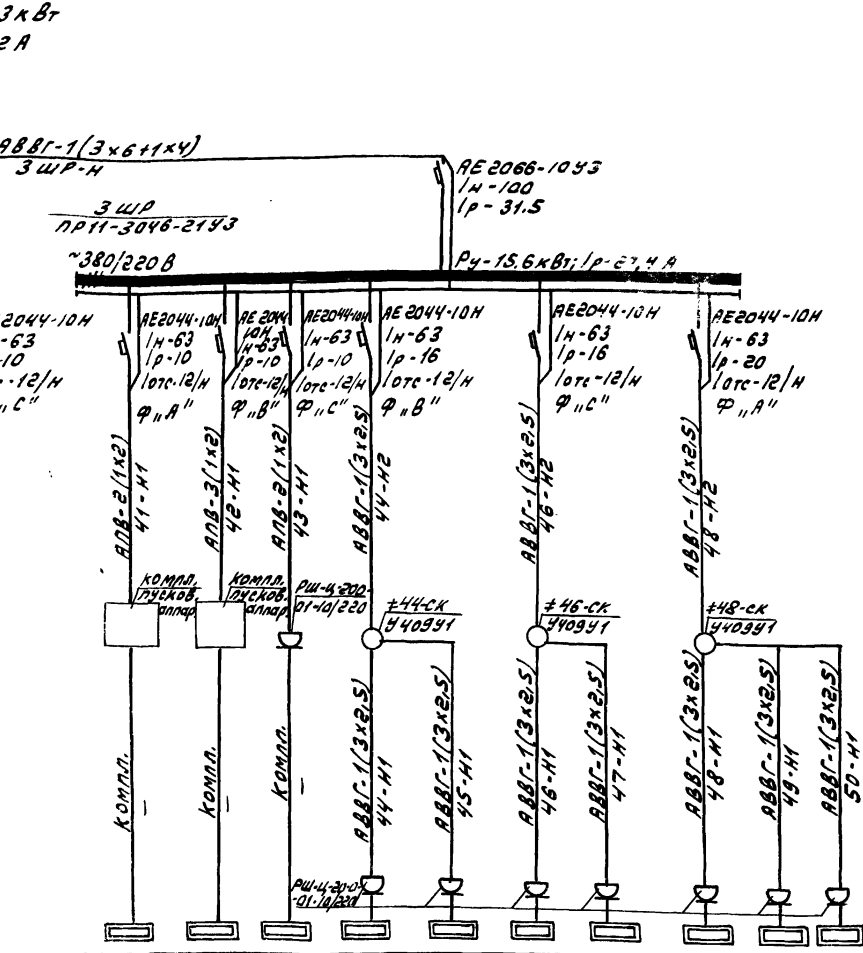 3 кВт
2 А
АВВГ-1(3×6+1×4)
3 ШР-Н
АЕ2066-10У3
Iн-100
Iр-31.5
3 ШР
ПР11-3046-21У3
~380/220 В
Ру-15.6 кВт; Iр-27,4 А
2044-10Н
-63
-10
-12/н
"С"
АЕ2044-10Н
Iн-63
Iр-10
Iотс-12/н
Ф„А"
АЕ2044
10Н
Iн-63
Iр-10
Iотс-12/н
Ф„В"
АЕ2044-10Н
Iн-63
Iр-10
Iотс-12/н
Ф„С"
АЕ2044-10Н
Iн-63
Iр-16
Iотс-12/н
Ф„В"
АЕ2044-10Н
Iн-63
Iр-16
Iотс-12/н
Ф„С"
АЕ2044-10Н
Iн-63
Iр-20
Iотс-12/н
Ф„А"
АПВ-2(1×2)
41-Н1
АПВ-3(1×2)
42-Н1
АПВ-2(1×2)
43-Н1
АВВГ-1(3×2,5)
44-Н2
АВВГ-1(3×2,5)
46-Н2
АВВГ-1(3×2,5)
48-Н2
компл.
пусков.
аппар.
компл.
пусков.
аппар.
РШ-Ц-200-
01-10/220
±44-СК
У409У1
±46-СК
У409У1
±48-СК
У409У1
компл.
компл.
компл.
АВВГ-1(3×2,5)
44-Н1
АВВГ-1(3×2,5)
45-Н1
АВВГ-1(3×2,5)
46-Н1
АВВГ-1(3×2,5)
47-Н1
АВВГ-1(3×2,5)
48-Н1
АВВГ-1(3×2,5)
49-Н1
АВВГ-1(3×2,5)
50-Н1
РШ-Ц-20-0-
-01-10/220